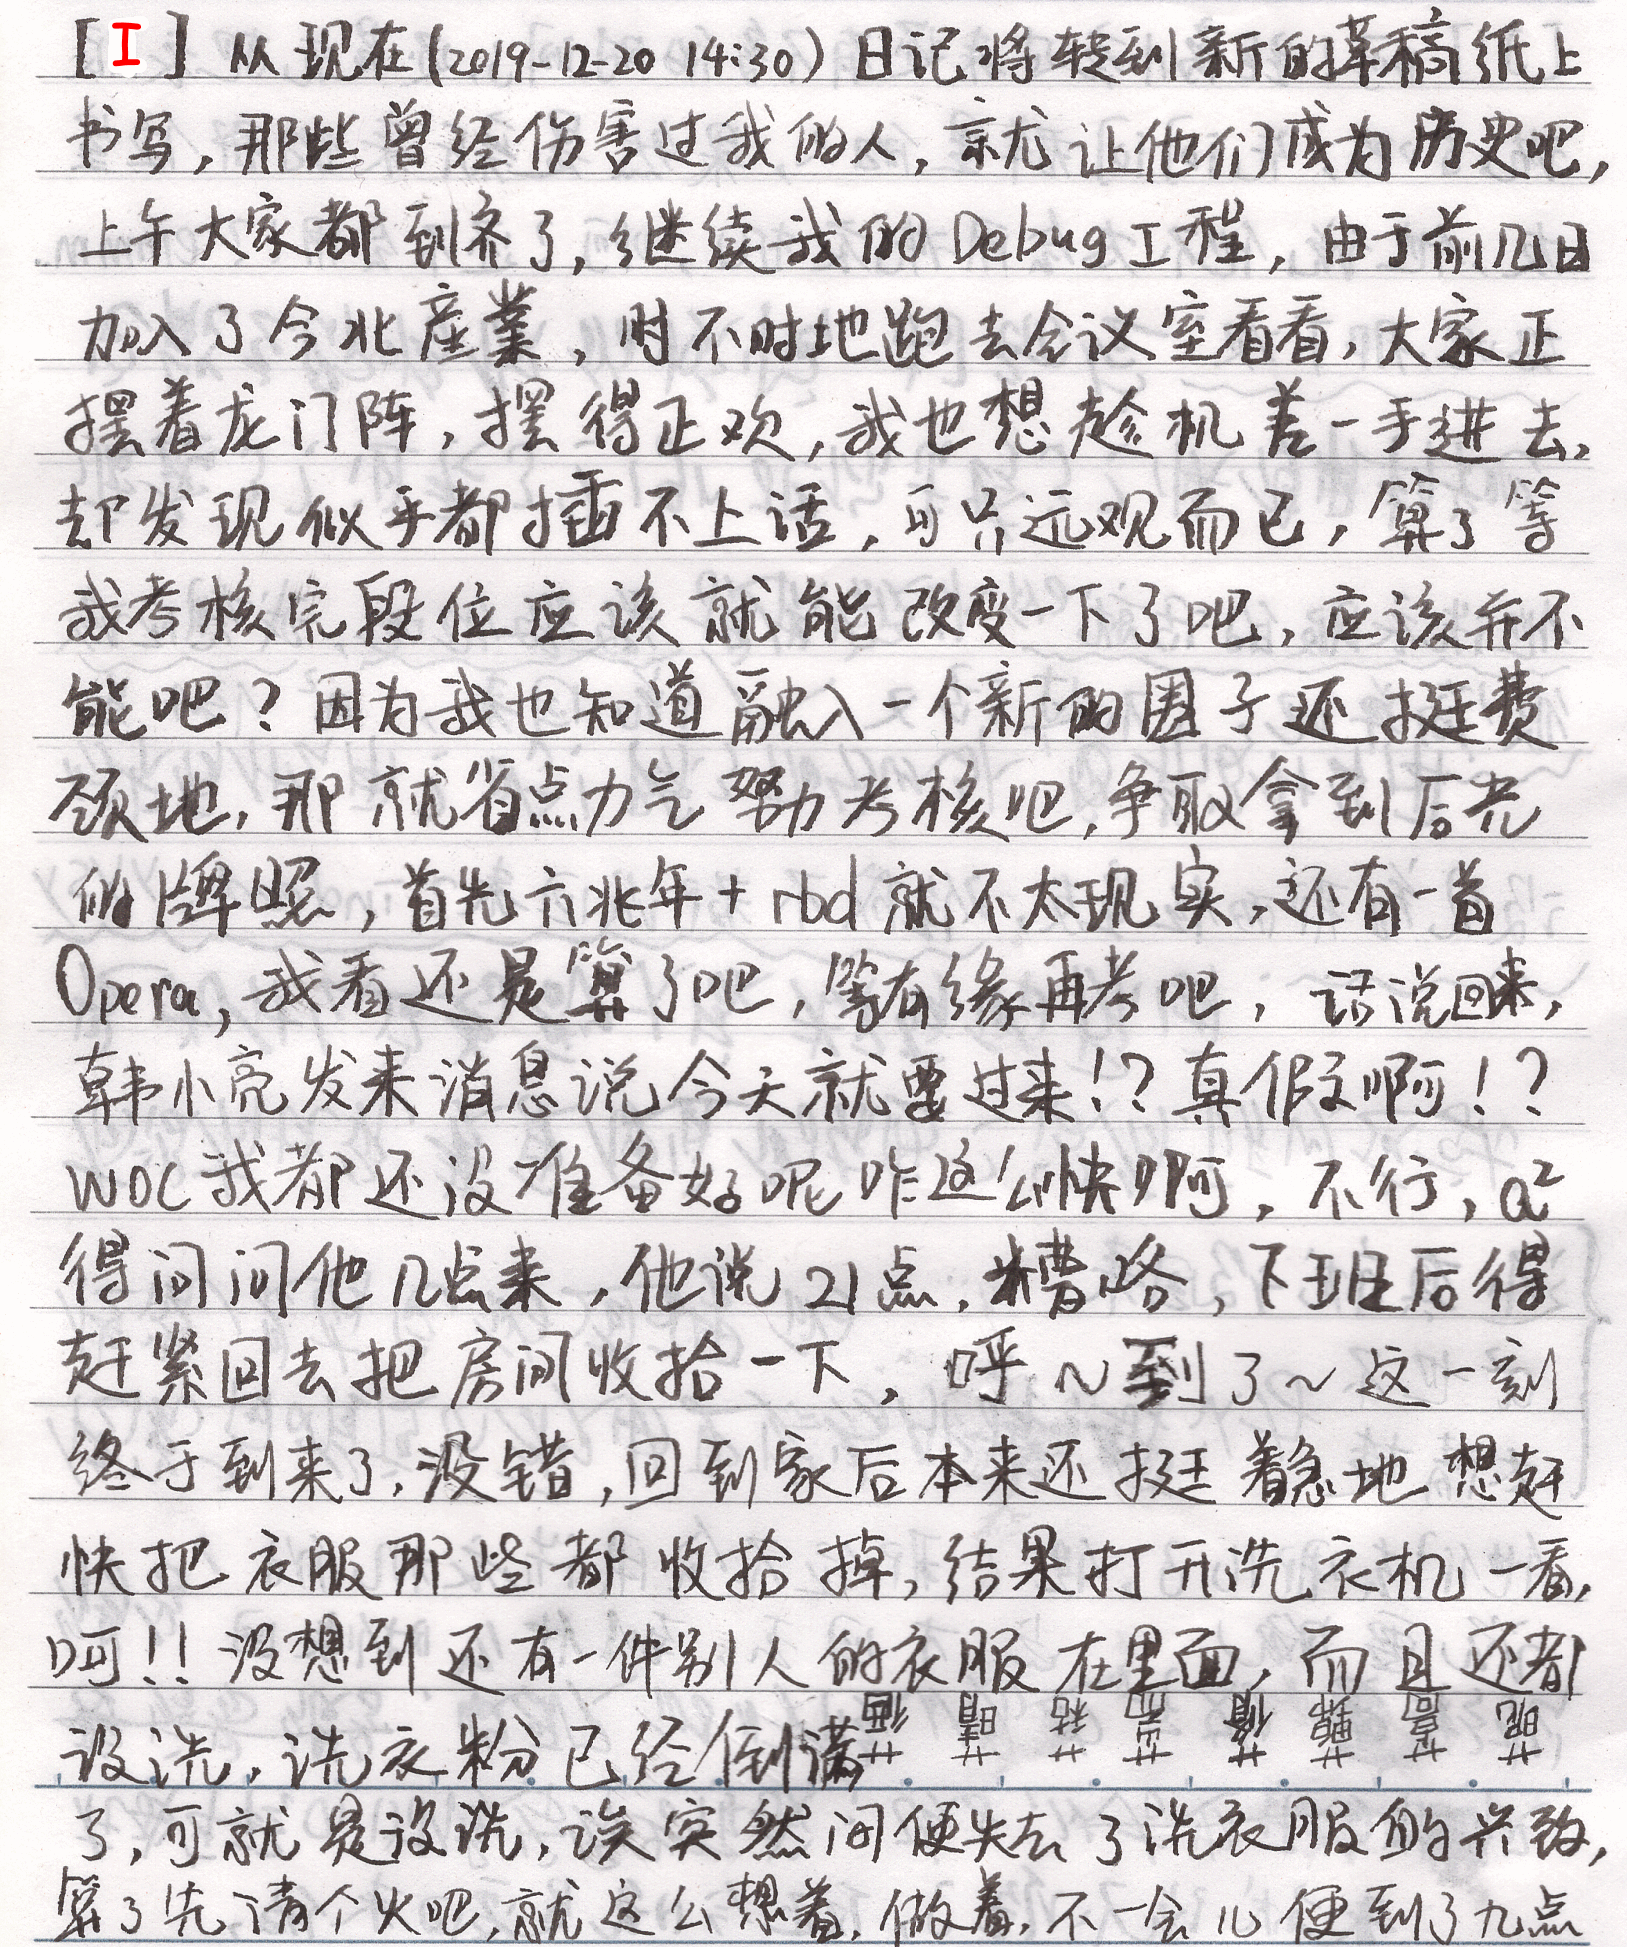 [I] 从现在(2019-12-20 14:30)日记将转到新的草稿纸上
书写,那些曾经伤害过我的人,就让他们成为历史吧,
上午大家都到齐了,继续我的Debug工程,由于前几日
加入了今北産業,时不时地跑去会议室看看,大家正
摆着龙门阵,摆得正欢,我也想趁机差一手进去,
却发现似乎都插不上话,可只远观而已,算了等
我考核完段位应该就能改变一下了吧,应该并不
能吧?因为我也知道融入一个新的圈子还挺费
颈地,那就省点力气努力考核吧,争取拿到后光
的牌照,首先六兆年+rbd就不太现实,还有一首
Opera,我看还是算了吧,等有缘再考吧,话说回来,
韩小亮发来消息说今天就要过来!?真假啊!?
WOC我都还没准备好呢咋这么快啊,不行,a²
得问问他几点来,他说21点,糟咯,下班后得
赶紧回去把房间收拾一下,呼~到了~这一刻
终于到来了,没错,回到家后本来还挺着急地想赶
快把衣服那些都收拾掉,结果打开洗衣机一看,
呵!!没想到还有一件别人的衣服在里面,而且还都
没洗,洗衣粉已经倒满
了,可就是没洗,诶突然间便失去了洗衣服的兴致,
算了先清个火吧,就这么想着,做着,不一会儿便到了九点